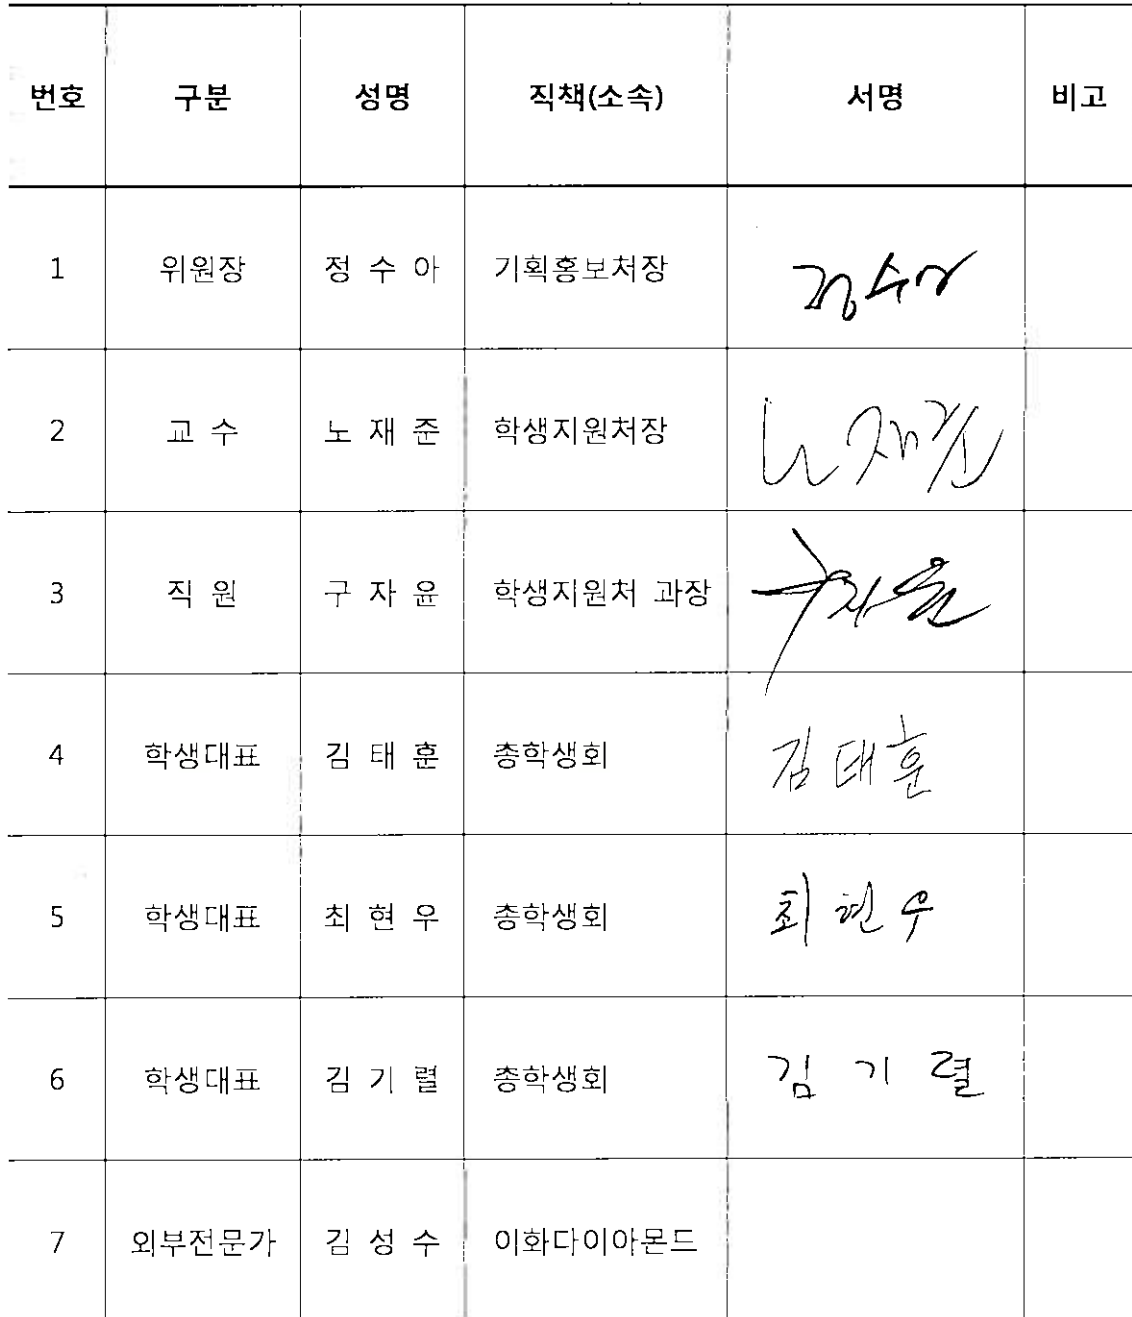 번호 구분 성명 직책(소속) 서명 비고
1 위원장 정 수 아 기획홍보처장 정수아
2 교 수 노 재 준 학생지원처장 노재준
3 직 원 구 자 윤 학생지원처 과장 구자윤
4 학생대표 김 태 훈 총학생회 김태훈
5 학생대표 최 현 우 총학생회 최현우
6 학생대표 김 기 렬 총학생회 김 기 렬
7 외부전문가 김 성 수 이화다이아몬드